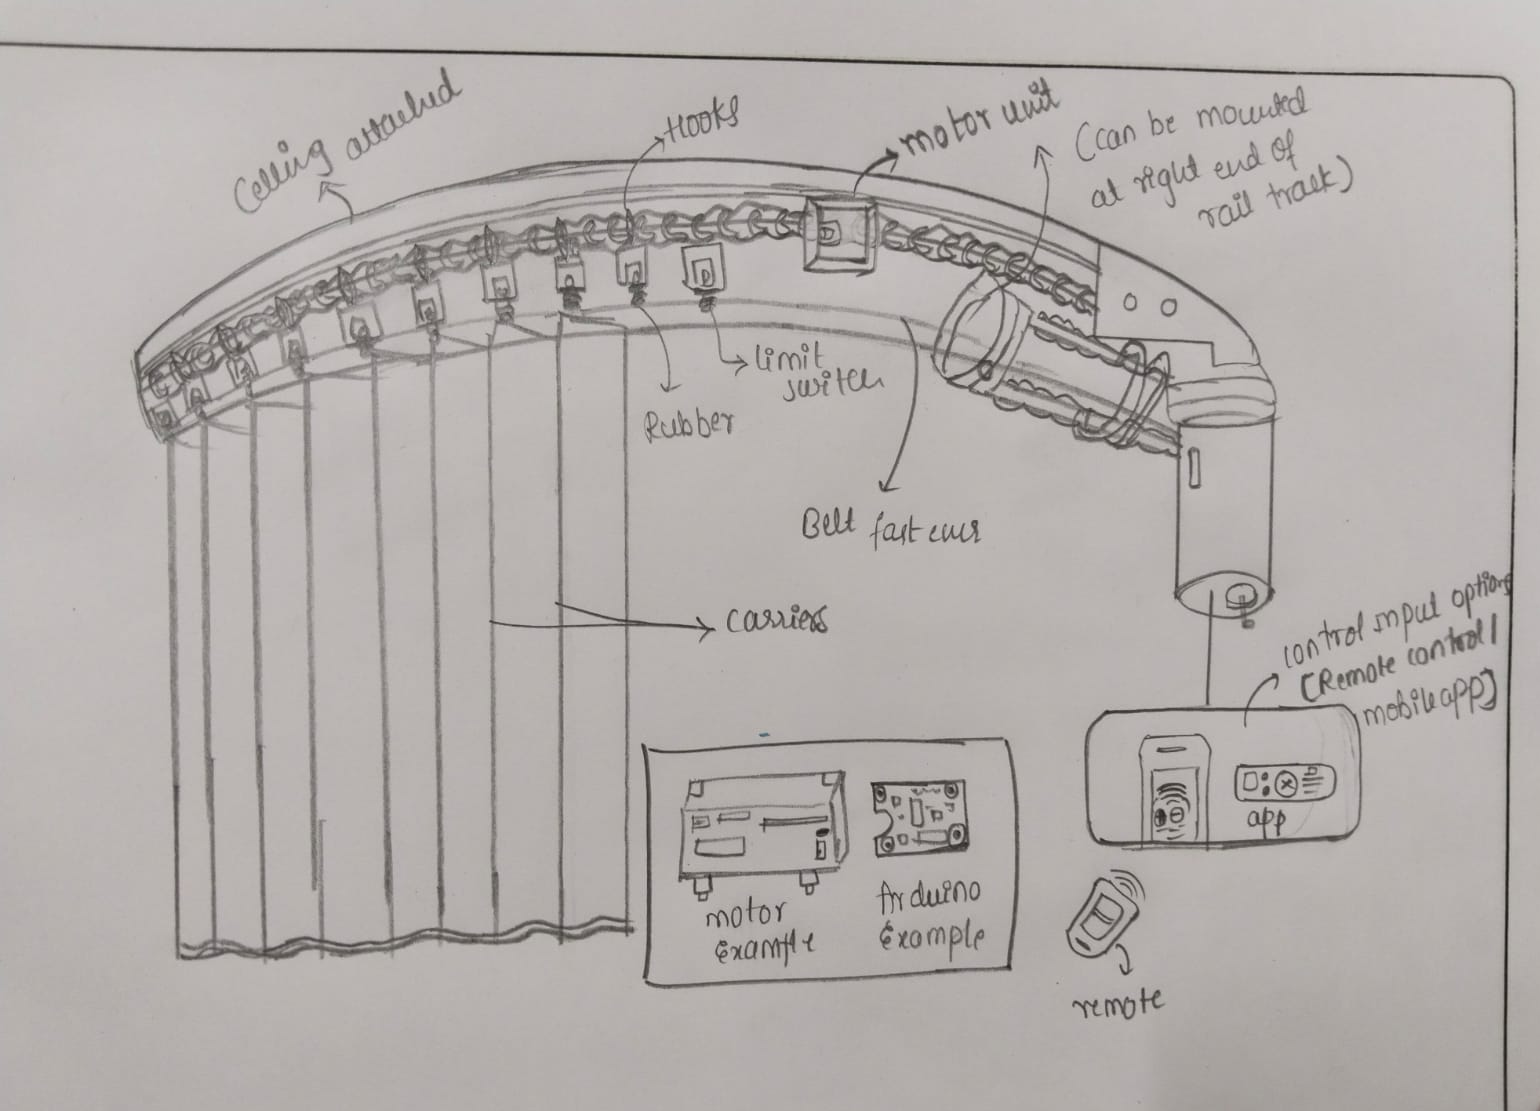 Celling attached
Hooks
motor unit
(can be mounted
at right end of
rail track)
limit
switch
Rubber
Belt fastener
carriers
control input options
[Remote control /
mobile app]
app
motor
Example
Arduino
Example
remote